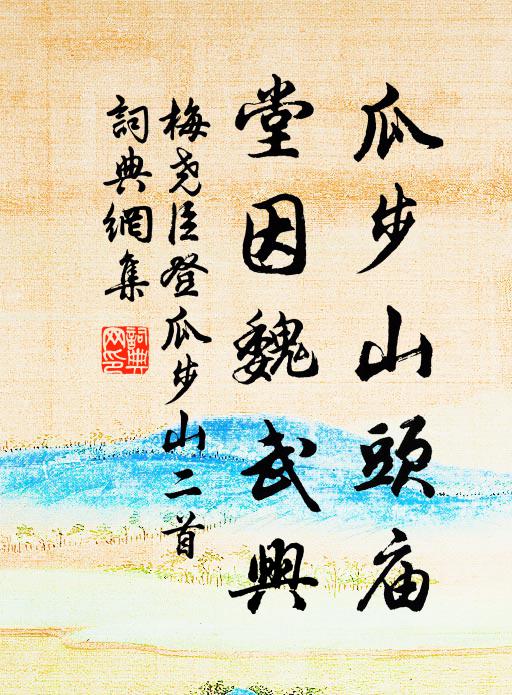 瓜步山頭庙
堂因魏武興
梅尧臣登瓜步山二首
詞典網集
詞典网印